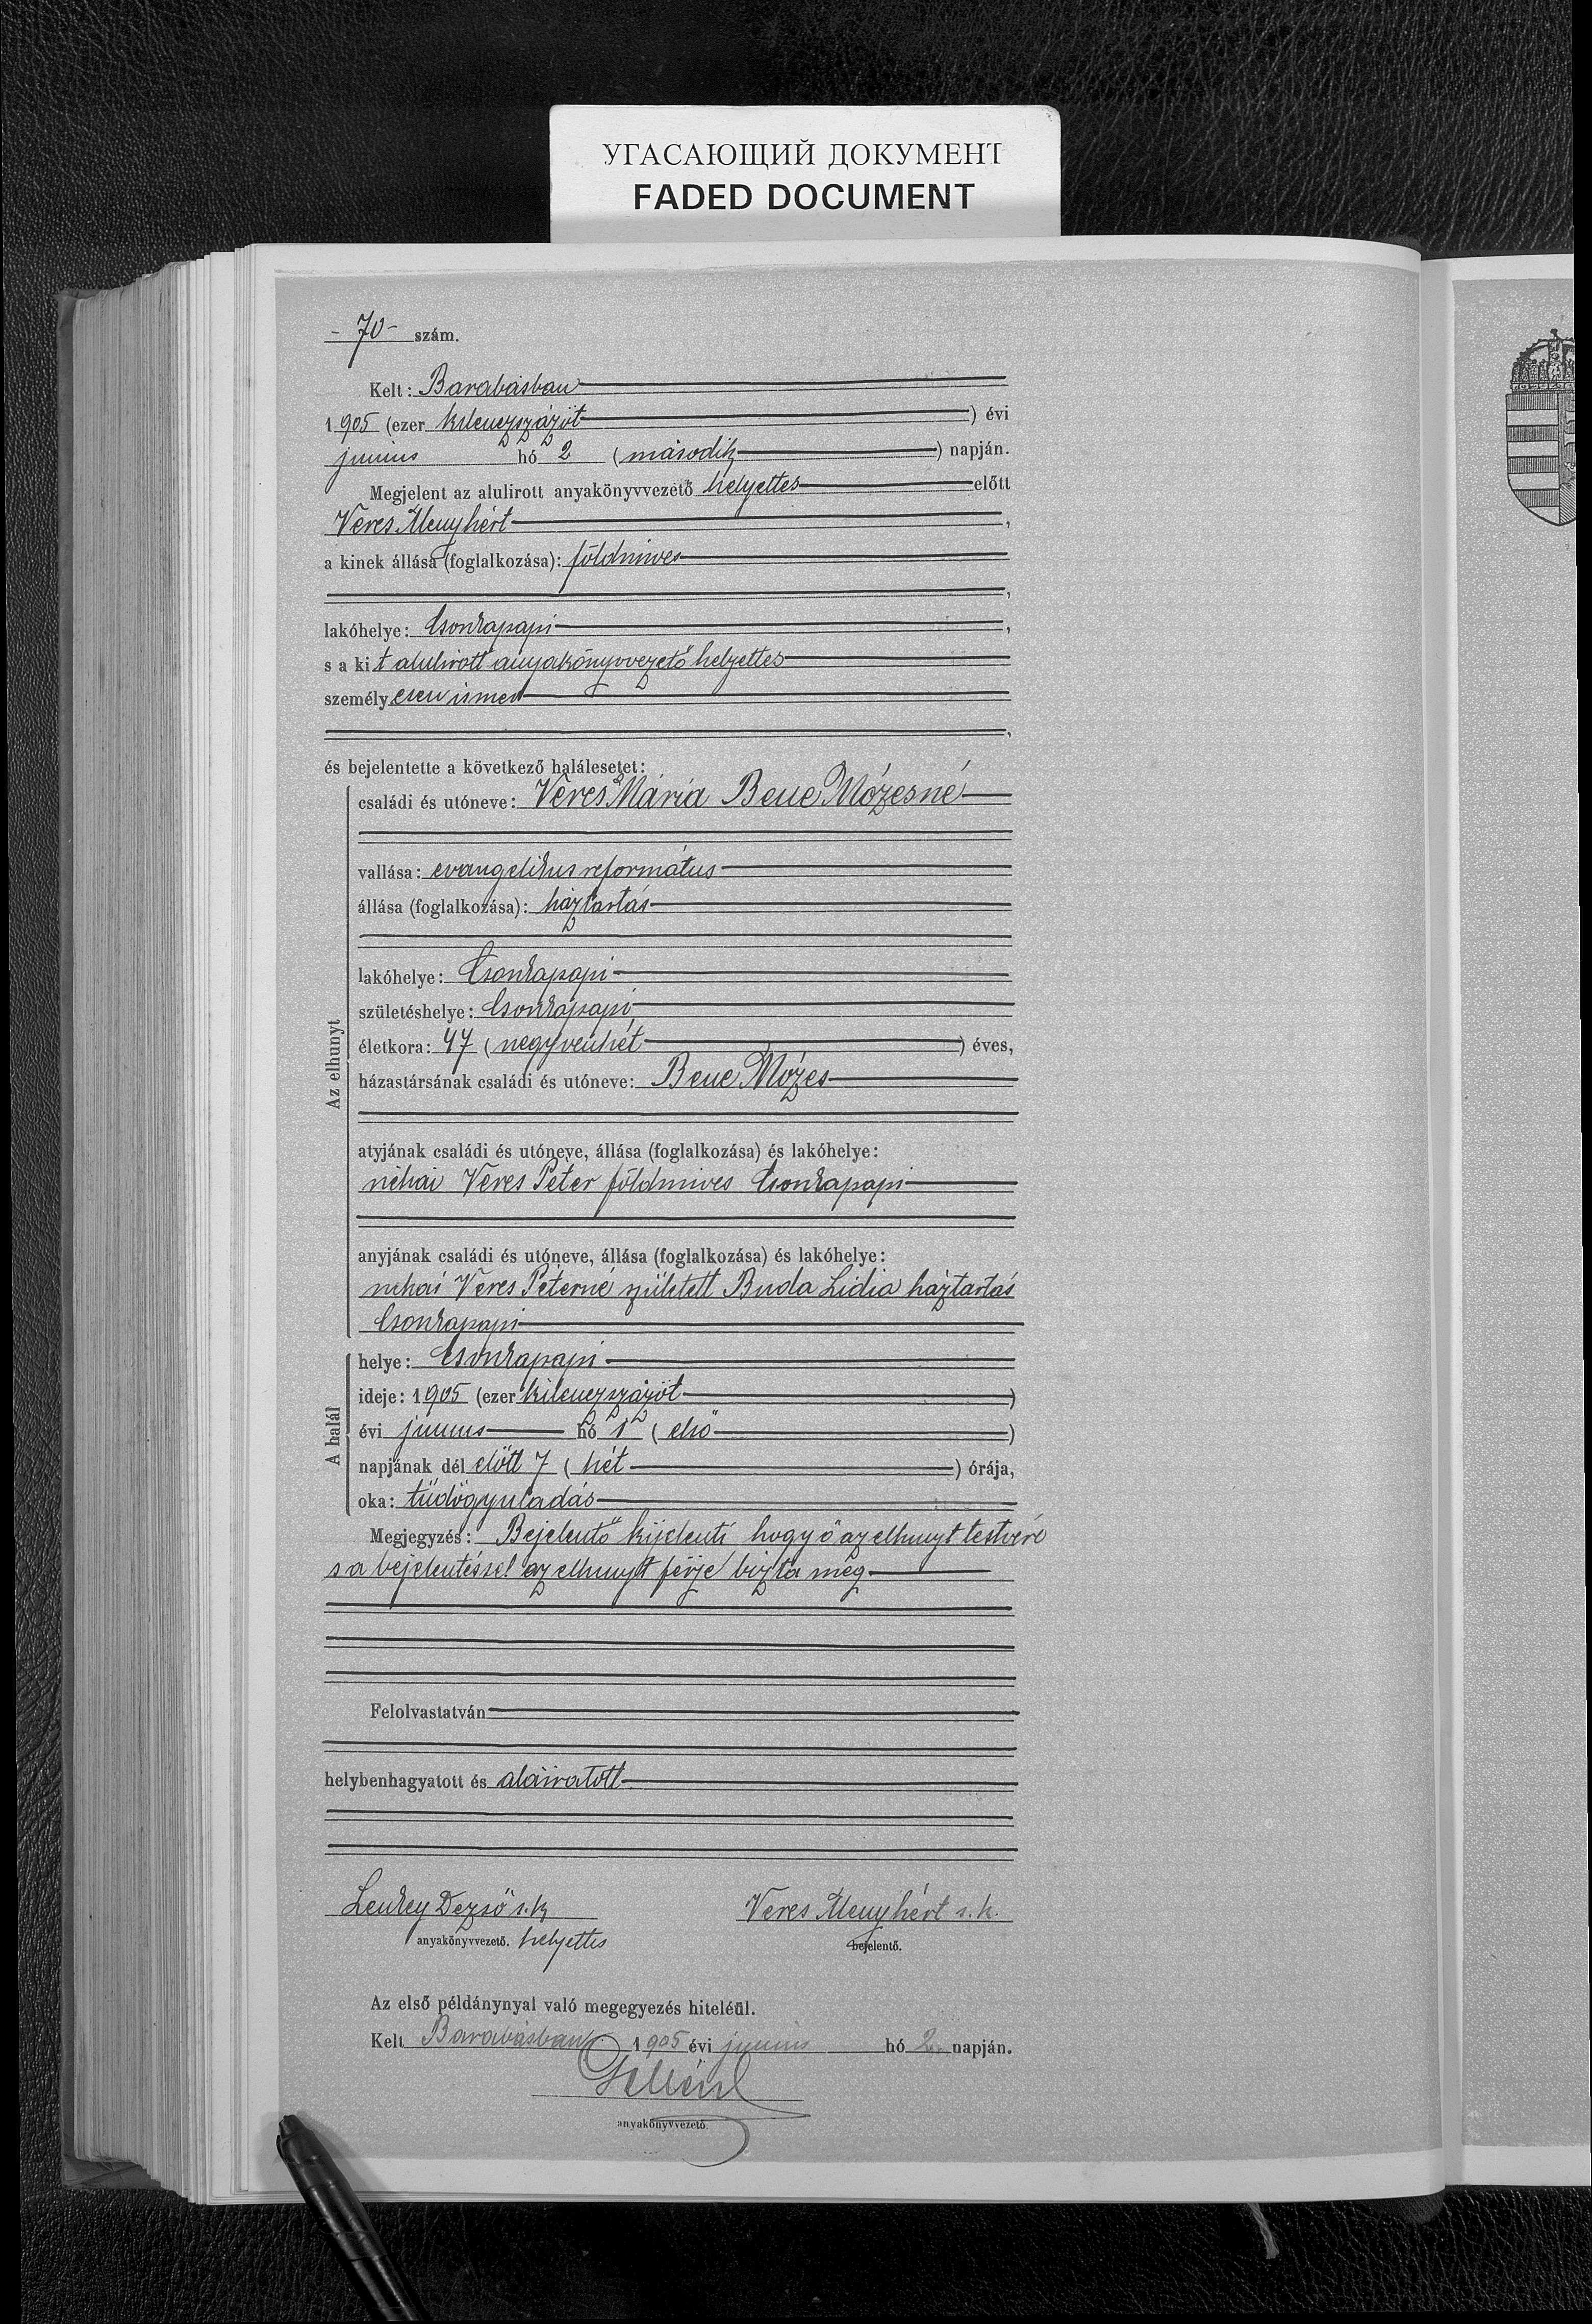 УГАСАЮЩИЙ ДОКУМЕНТ
FADED DOCUMENT
- 70 - szám.
Kelt: Barabásban
1905 (ezer kilenczszázöt) évi
junius hó 2 (második) napján.
Megjelent az alulirott anyakönyvvezető helyettes előtt
Veres Menyhért,
a kinek állása (foglalkozása): földmives
,
lakóhelye: Csonkapapi,
s a kit alulirott anyakönyvvezető helyettes
személyesen ismer
,
és bejelentette a következő halálesetet:
Az elhunyt
családi és utóneve: Veres Mária Bene Mózesné
vallása: evangelikus református
állása (foglalkozása): háztartás
lakóhelye: Csonkapapi
születéshelye: Csonkapapi
életkora: 47 (negyvenhét) éves,
házastársának családi és utóneve: Bene Mózes
atyjának családi és utóneve, állása (foglalkozása) és lakóhelye:
néhai Veres Péter földmives Csonkapapi
anyjának családi és utóneve, állása (foglalkozása) és lakóhelye:
néhai Veres Péterné született Buda Lidia háztartás
Csonkapapi
A halál
helye: Csonkapapi
ideje: 1905 (ezer kilenczszázöt)
évi junius hó 1 (első)
napjának dél előtt 7 (hét) órája,
oka: tüdőgyuladás
Megjegyzés: Bejelentő kijelenti hogy ő az elhunyt testvére
s a bejelentéssel az elhunyt férje bizta meg
Felolvastatván
helybenhagyatott és aláiratott
Lenkey Dezső s. k. Veres Menyhért s. k.
anyakönyvvezető. helyettes bejelentő.
Az első példánynyal való megegyezés hiteléül.
Kelt Barabásban 1905 évi junius hó 2. napján.
anyakönyvvezető.